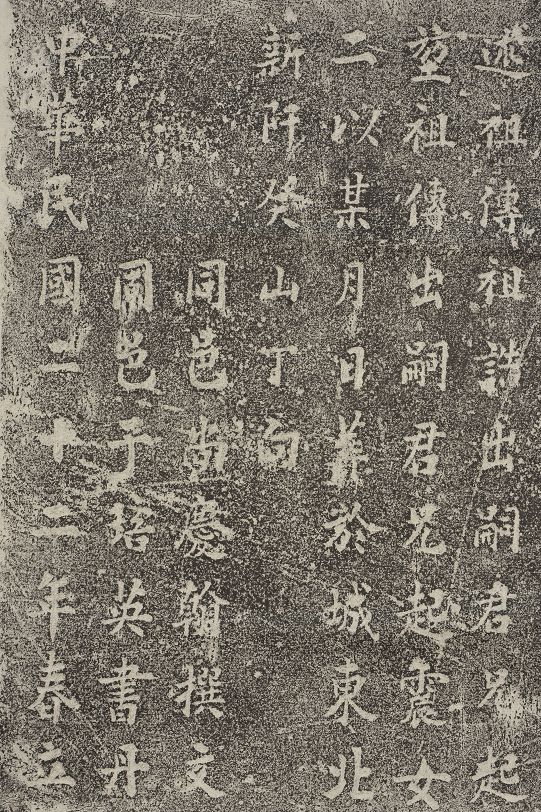 述祖傳祖詵出嗣君兄起
堃祖傳出嗣君兄起震女
二以某月日葬於城東北
新阡癸山丁向
同邑尚慶翰撰文
同邑于培英書丹
中華民國二十二年春立